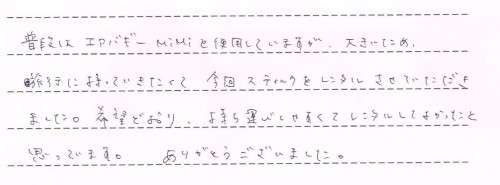 普段は エアバギー MiMi を使用していますが、大きいため、
旅行に持っていきたくて 今回 スティックをレンタル させていただき
ました。希望どおり、持ち運びしやすくてレンタルしてよかったと
思っています。 ありがとうございました。